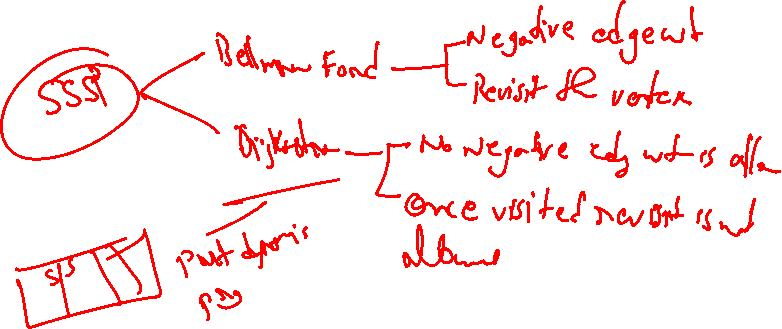 SSSP
Bellman Ford
Negative edge wt
Revisit the vertex
Dijkstra
No Negative edg wt is allow
Once visited revisit is not
allowed
S/S